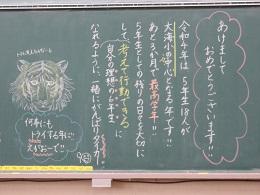 あけまして
おめでとうございます!!
令和4年は、5年生18人が
大海小の中心となる年です!!
あと3か月で最高学年!!
5年生としての残りの日々を大切に
して、考えて行動できる
"自分の理想の6年生"に
なれるように、一緒にがんばりましょう。
何事にも
トライする年に!!
えがおーで!!